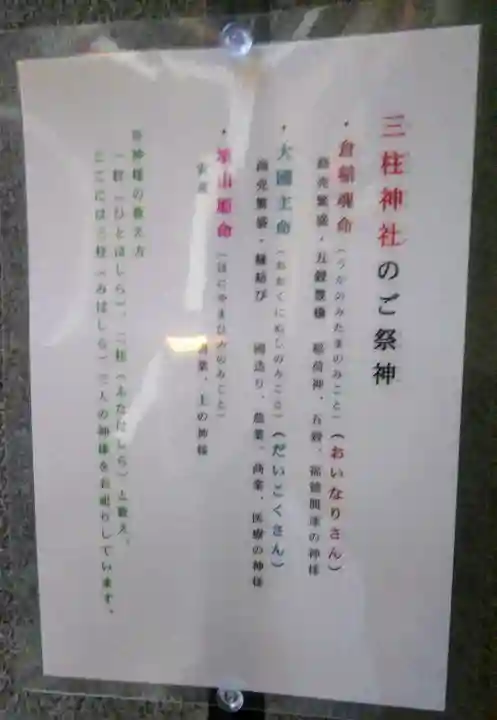 三柱神社のご祭神
・倉稲魂命(うかのみたまのみこと)(おいなりさん)
商売繁盛・五穀豊穣 稲荷神、五穀、福徳開運の神様
・大國主命(おおくにぬしのみこと)(だいこくさん)
商売繁盛・縁結び 國造り、農業、商業、医療の神様
・埴山姫命(はにやまひめのみこと)
安産 農業、土の神様
※神様の数え方
一柱(ひとはしら)、二柱(ふたはしら)と数え、
ここには三柱(みはしら)三人の神様をお祀りしています。